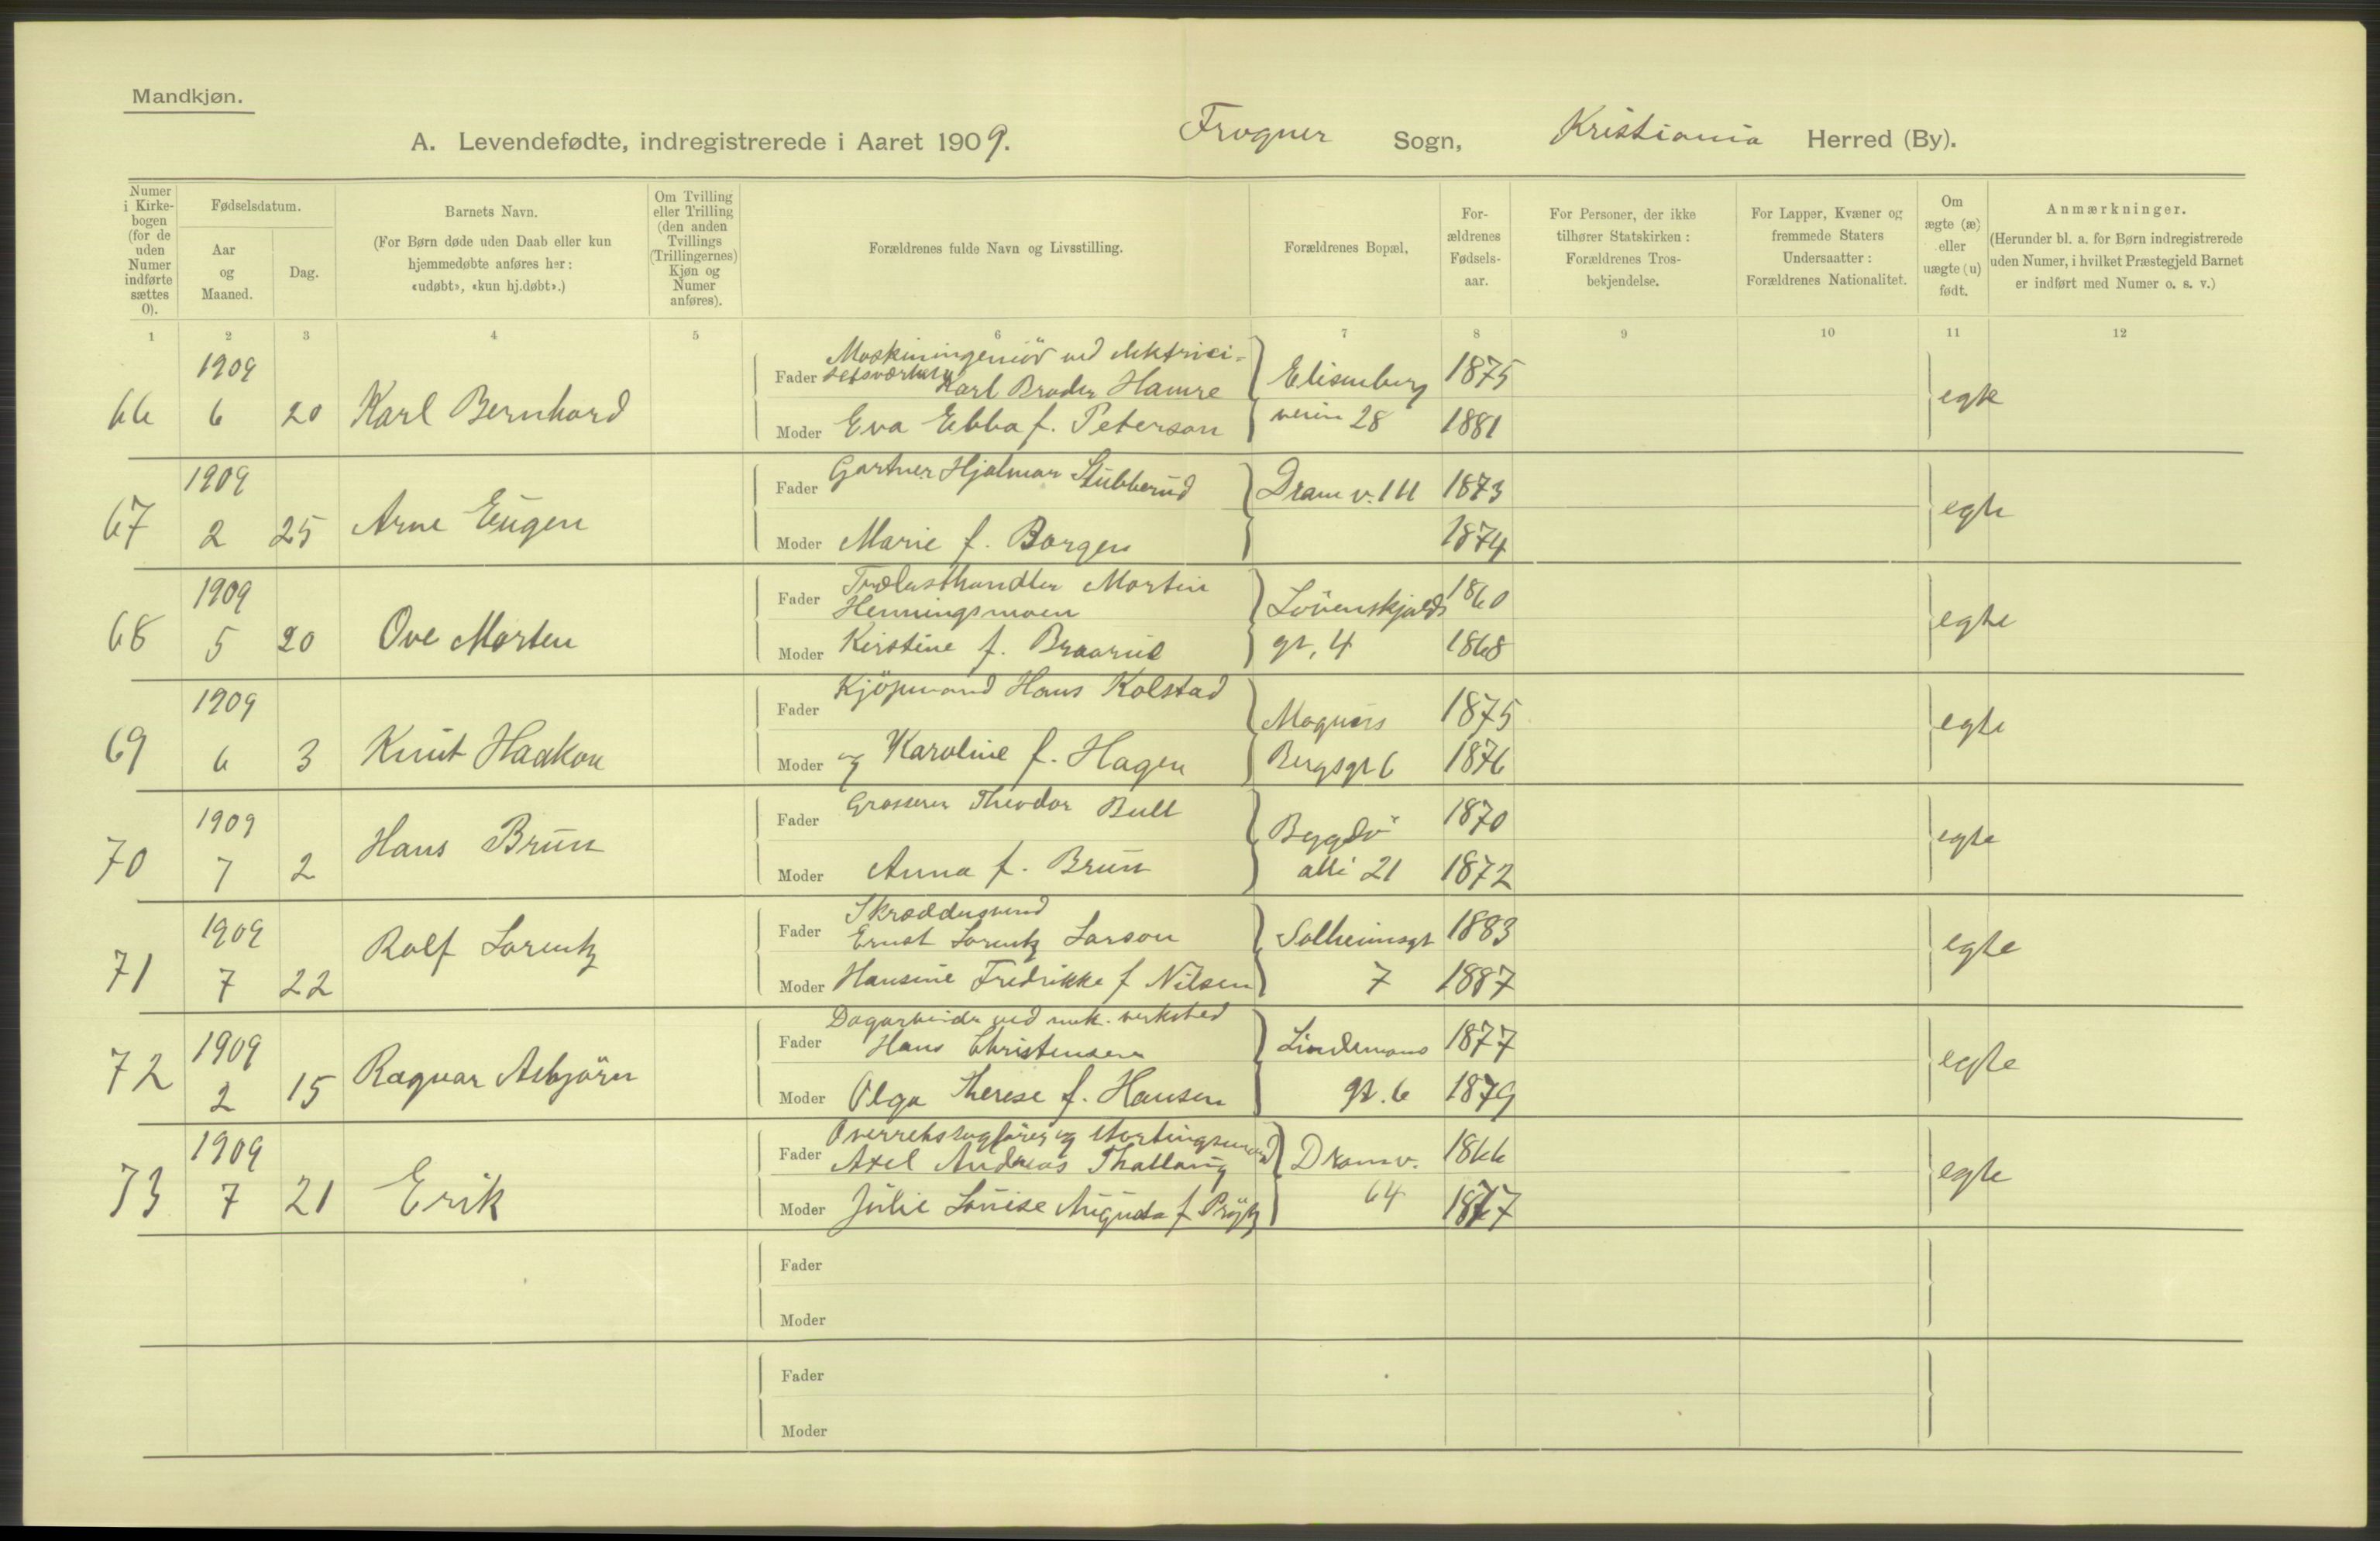 Mandkjøn.
A. Levendefødte, indregistrerede i Aaret 1909. Frogner Sogn, Kristiania Herred (By).
Numer i Kirkebogen (for de uden Numer indførte sættes 0).
Fødselsdatum.
Aar og Maaned.
Dag.
Barnets Navn.
(For Børn døde uden Daab eller kun hjemmedøbte anføres her: «udøbt», «kun hj.døbt».)
Om Tvilling eller Trilling (den anden Tvillings (Trillingernes) Kjøn og Numer anføres).
Forældrenes fulde Navn og Livsstilling.
Forældrenes Bopæl,
Forældrenes Fødselsaar.
For Personer, der ikke tilhører Statskirken: Forældrenes Trosbekjendelse.
For Lapper, Kvæner og fremmede Staters Undersaatter: Forældrenes Nationalitet.
Om ægte (æ) eller uægte (u) født.
Anmærkninger.
(Herunder bl. a. for Børn indregistrerede uden Numer, i hvilket Præstegjeld Barnet er indført med Numer o. s. v.)
1 2 3 4 5 6 7 8 9 10 11 12
66 1909 6 20 Karl Bernhard
Fader Maskiningeniör ved elektrici-
tetsværket Karl Broder Hamre Elisenberg 1875 egte
Moder Eva Ebba f. Peterson veien 28 1881
67 1909 2 25 Arne Eugen
Fader Gartner Hjalmar Stubberud Dram v. 111 1873 egte
Moder Marie f. Borgen 1874
68 1909 5 20 Ove Morten
Fader Trælasthandler Martin
Henningsmoen Lövenskjolds 1860 egte
Moder Kirstine f. Braarud gt, 4 1868
69 1909 6 3 Knut Haakon
Fader Kjöpmand Hans Kolstad Magnus 1875 egte
Moder og Karoline f. Hagen Bergsgt 6 1876
70 1909 7 2 Hans Brun
Fader Grosserer Theodor Bull Bygdö 1870 egte
Moder Anna f. Brun alle 21 1872
71 1909 7 22 Rolf Lorentz
Fader Skræddersvend
Ernst Lorentz Larson Solheimsgt 1883 egte
Moder Hansine Fredrikke f Nilsen 7 1887
72 1909 2 15 Ragnar Asbjörn
Fader Dagarbeider ved mek. verksted
Hans Christensen Lindemans 1877 egte
Moder Olga Therese f. Hansen gt. 6 1879
73 1909 7 21 Erik
Fader Overretssagförer og stortingsmand
Axel Andreas Thallaug Dram v. 1866 egte
Moder Julie Louise Augusta f Prÿtz 64 1877
Fader
Moder
Fader
Moder